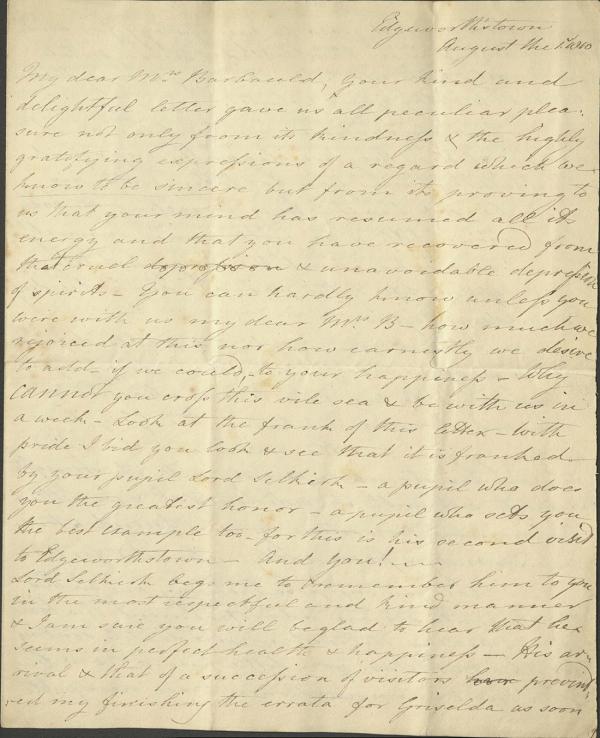 Edgeworthstown
August the 1st 1810
My dear Mrs Barbauld, Your kind and
delightful letter gave us all peculiar plea-
sure not only from its kindness & the highly
gratifying expressions of a regard which we
know to be sincere but from its proving to
us that your mind has resumed all its
energy and that you have recovered from
that cruel depression & unavoidable depression
of spirits – You can hardly know unless you
were with us my dear Mrs B – how much we
rejoiced at this nor how earnestly we desire
to add – if we could – to your happiness – Why
cannot you cross this vile sea & be with us in
a week – Look at the frank of this letter – with
pride I bid you look & see that it is franked
by your pupil Lord Selkirk – a pupil who does
you the greatest honor – a pupil who sets you
the best example too – for this is his second visit
to Edgeworthstown – And you! –
Lord Selkirk begs me to remember him to you
in the most respectful and kind manner
& I am sure you will be glad to hear that he
seems in perfect health & happiness – His ar-
rival & that of a succession of visitors have prevent-
ed my finishing the errata for Griselda as soon